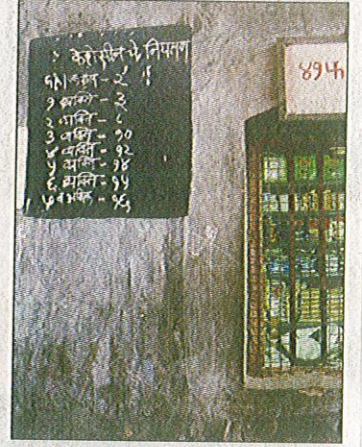 केरोसीन चे नियतन
१ व्यक्ति - ३
२ व्यक्ति - ८
३ व्यक्ति - १०
४ व्यक्ति - १२
५ व्यक्ति - १४
६ व्यक्ति - १५
- १६
४१५